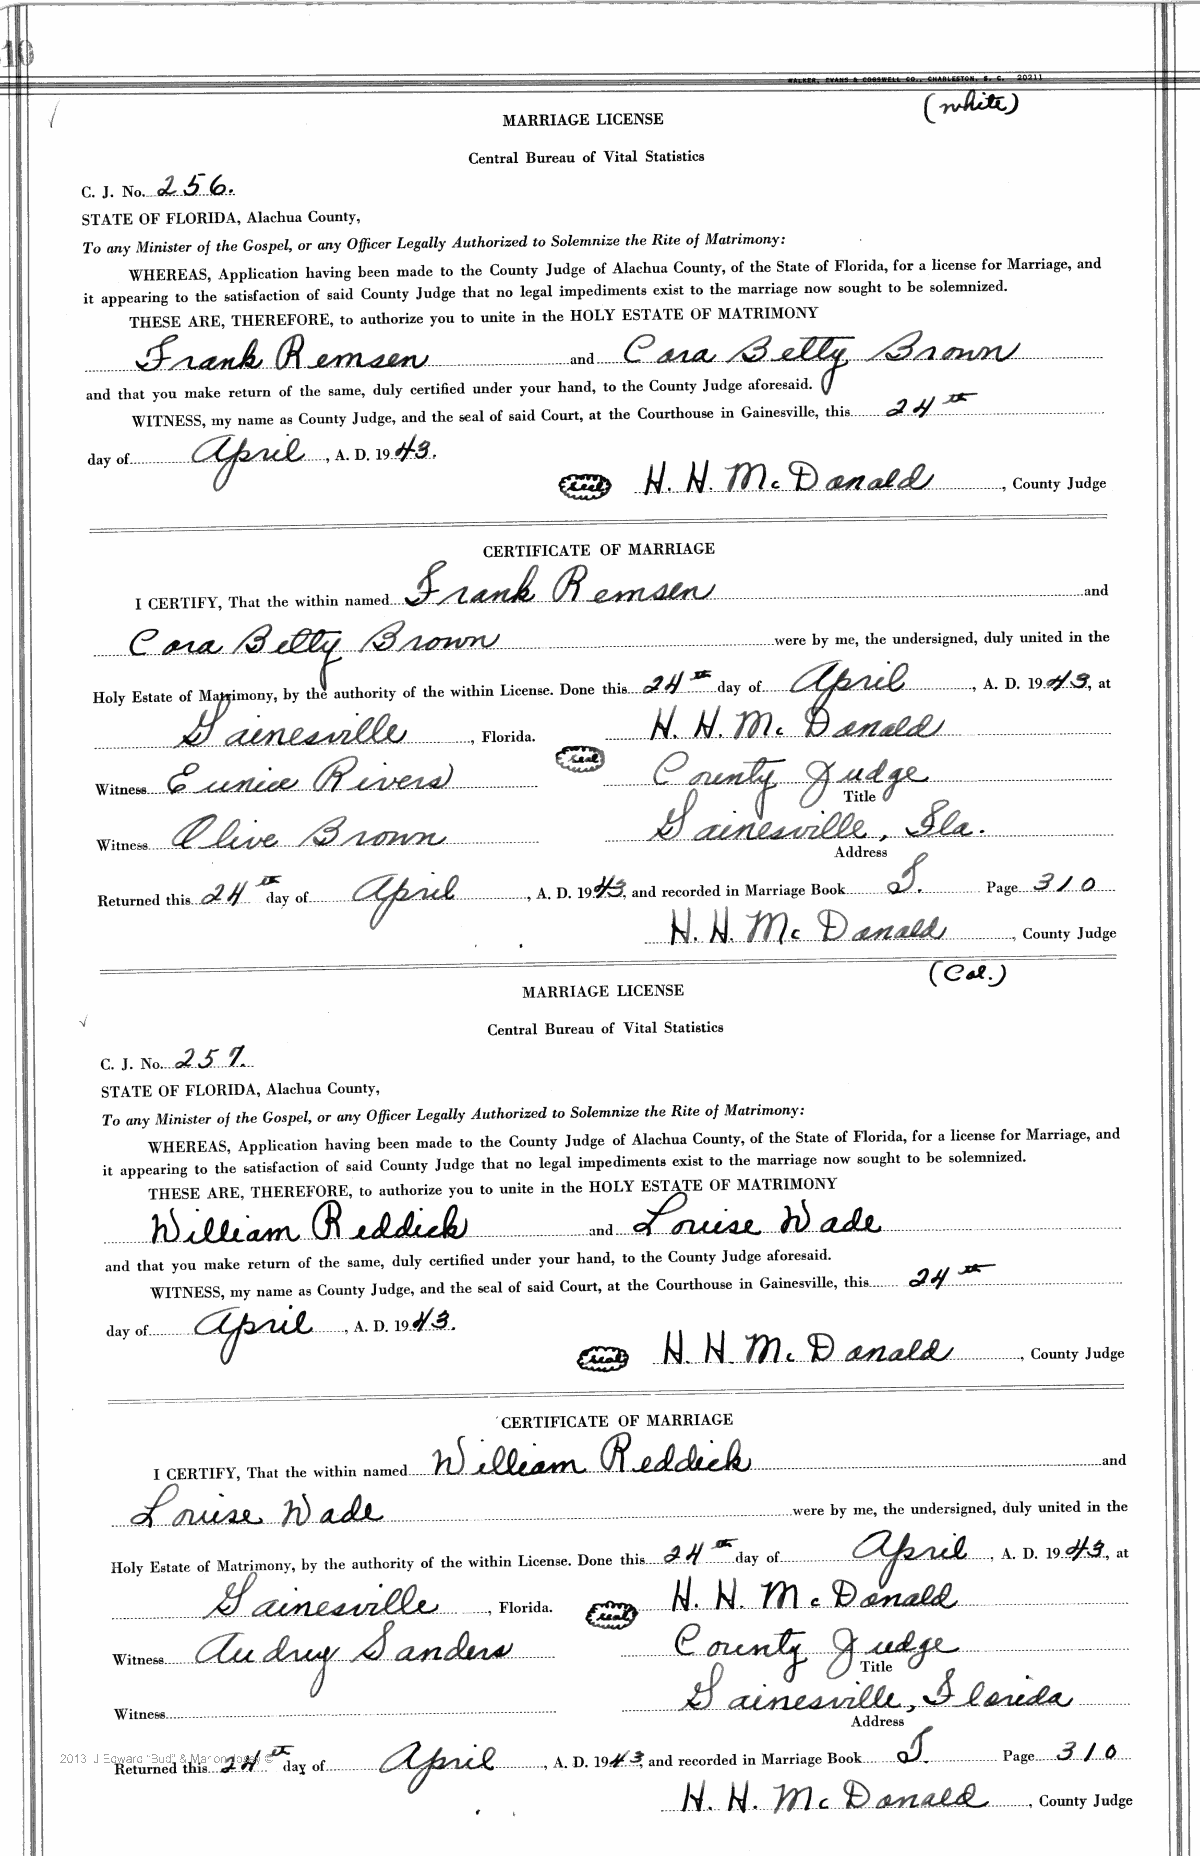 10
WALKER, EVANS & COGSWELL CO., CHARLESTON, S. C. 20211
(white)
MARRIAGE LICENSE
Central Bureau of Vital Statistics
C. J. No. 256.
STATE OF FLORIDA, Alachua County,
To any Minister of the Gospel, or any Officer Legally Authorized to Solemnize the Rite of Matrimony:
WHEREAS, Application having been made to the County Judge of Alachua County, of the State of Florida, for a license for Marriage, and
it appearing to the satisfaction of said County Judge that no legal impediments exist to the marriage now sought to be solemnized.
THESE ARE, THEREFORE, to authorize you to unite in the HOLY ESTATE OF MATRIMONY
Frank Remsen and Cora Betty Brown
and that you make return of the same, duly certified under your hand, to the County Judge aforesaid.
WITNESS, my name as County Judge, and the seal of said Court, at the Courthouse in Gainesville, this 24th
day of April, A. D. 1943.
seal H. H. McDonald, County Judge
CERTIFICATE OF MARRIAGE
I CERTIFY, That the within named Frank Remsen and
Cora Betty Brown were by me, the undersigned, duly united in the
Holy Estate of Matrimony, by the authority of the within License. Done this 24th day of April, A. D. 1943, at
Gainesville, Florida. H. H. McDonald
seal
Witness Eunice Rivers County Judge
Title
Witness Olive Brown Gainesville, Fla.
Address
Returned this 24th day of April, A. D. 1943, and recorded in Marriage Book S. Page 310
H. H. McDonald, County Judge
(Col.)
MARRIAGE LICENSE
Central Bureau of Vital Statistics
C. J. No. 257.
STATE OF FLORIDA, Alachua County,
To any Minister of the Gospel, or any Officer Legally Authorized to Solemnize the Rite of Matrimony:
WHEREAS, Application having been made to the County Judge of Alachua County, of the State of Florida, for a license for Marriage, and
it appearing to the satisfaction of said County Judge that no legal impediments exist to the marriage now sought to be solemnized.
THESE ARE, THEREFORE, to authorize you to unite in the HOLY ESTATE OF MATRIMONY
William Reddick and Louise Wade
and that you make return of the same, duly certified under your hand, to the County Judge aforesaid.
WITNESS, my name as County Judge, and the seal of said Court, at the Courthouse in Gainesville, this 24th
day of April, A. D. 1943.
seal H. H. McDonald, County Judge
CERTIFICATE OF MARRIAGE
I CERTIFY, That the within named William Reddick and
Louise Wade were by me, the undersigned, duly united in the
Holy Estate of Matrimony, by the authority of the within License. Done this 24th day of April, A. D. 1943, at
Gainesville, Florida. seal H. H. McDonald
Witness Audrey Sanders County Judge
Title
Witness Gainesville, Florida
Address
2013 J Edward "Bud" & Marion
Returned this 24th day of April, A. D. 1943, and recorded in Marriage Book S. Page 310
H. H. McDonald, County Judge